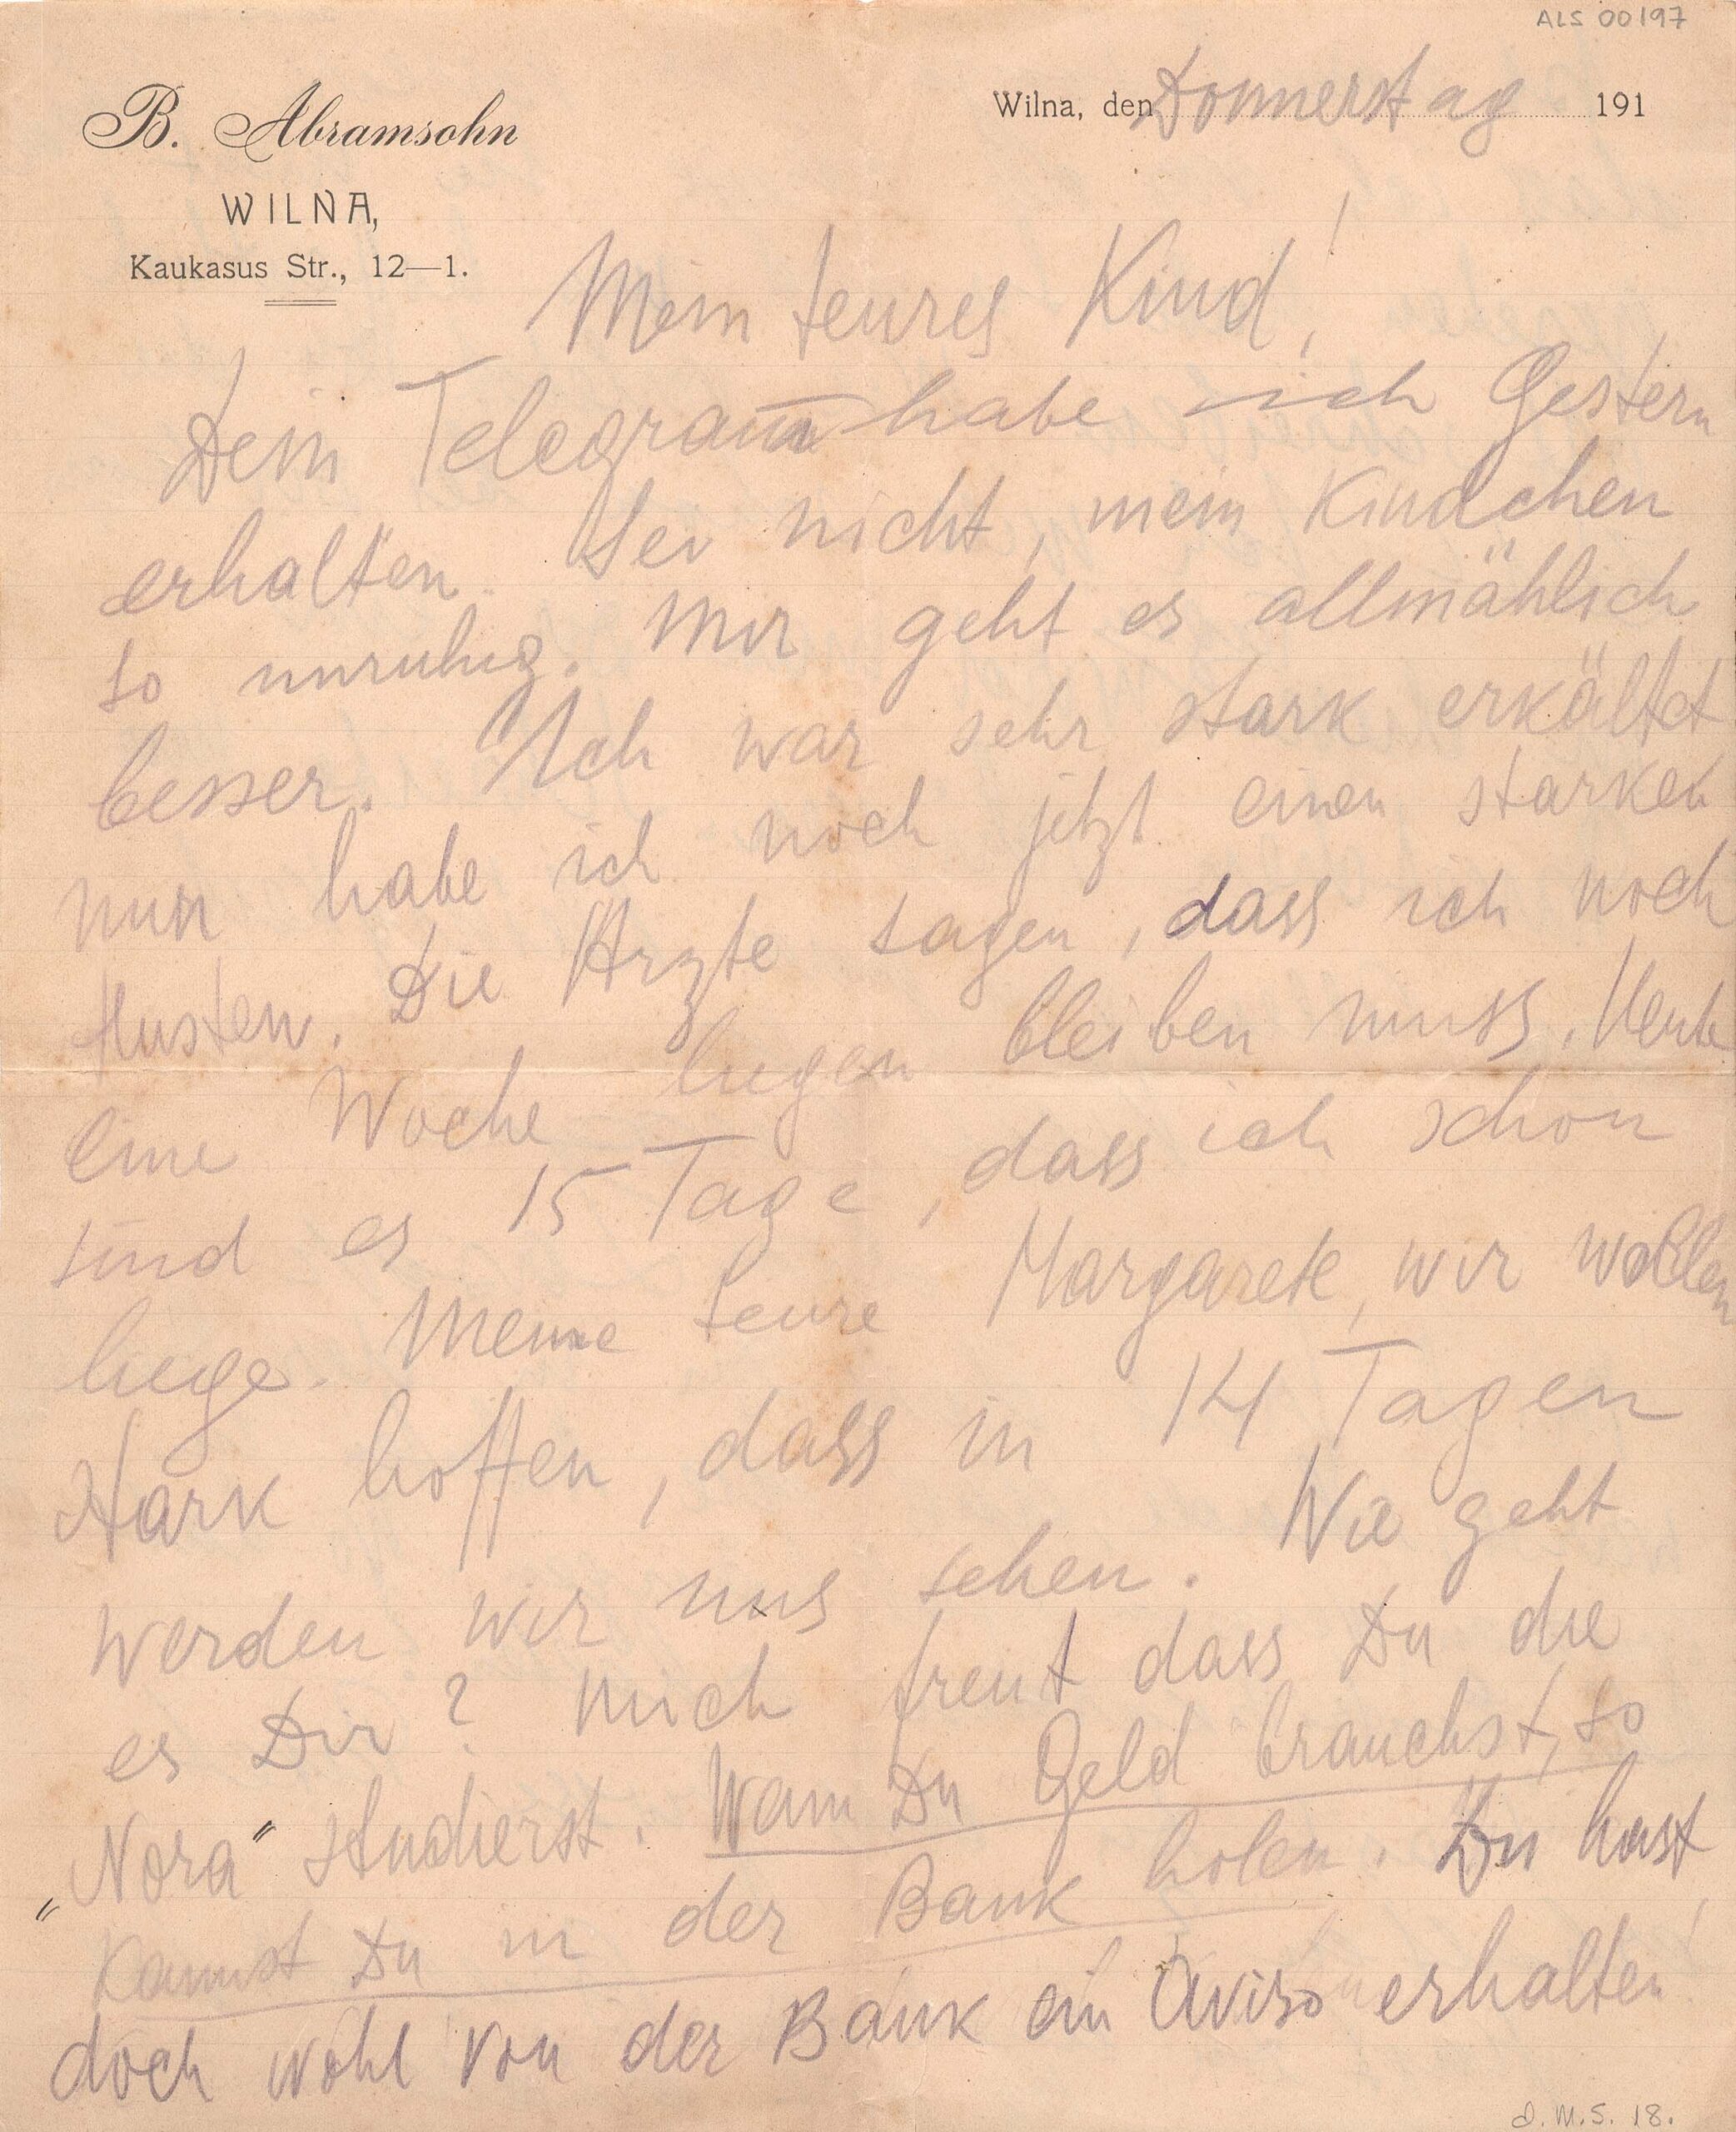 ALS 00197
B. Abramsohn
WILNA,
Kaukasus Str., 12—1.
Wilna, den Donnerstag 191
Mein teures Kind!
Dein Telegramm habe ich Gestern
erhalten. Sei nicht, mein Kindchen
so unruhig. Mir geht es allmählich
besser. Ich war sehr stark erkältet
nun habe ich noch jetzt einen starken
Husten. Die Ärzte sagen, dass ich noch
eine Woche liegen bleiben muss. Heute
sind es 15 Tage, dass ich schon
liege. Meine teure Margarete, wir wollen
stark hoffen, dass in 14 Tagen
werden wir uns sehen. Wie geht
es Dir? Mich freut dass Du die
„Nora“ studierst. Wann Du Geld brauchst, so
kannst Du in der Bank holen. Du hast
doch wohl von der Bank ein Aviso erhalten!
d.M.S. 18.